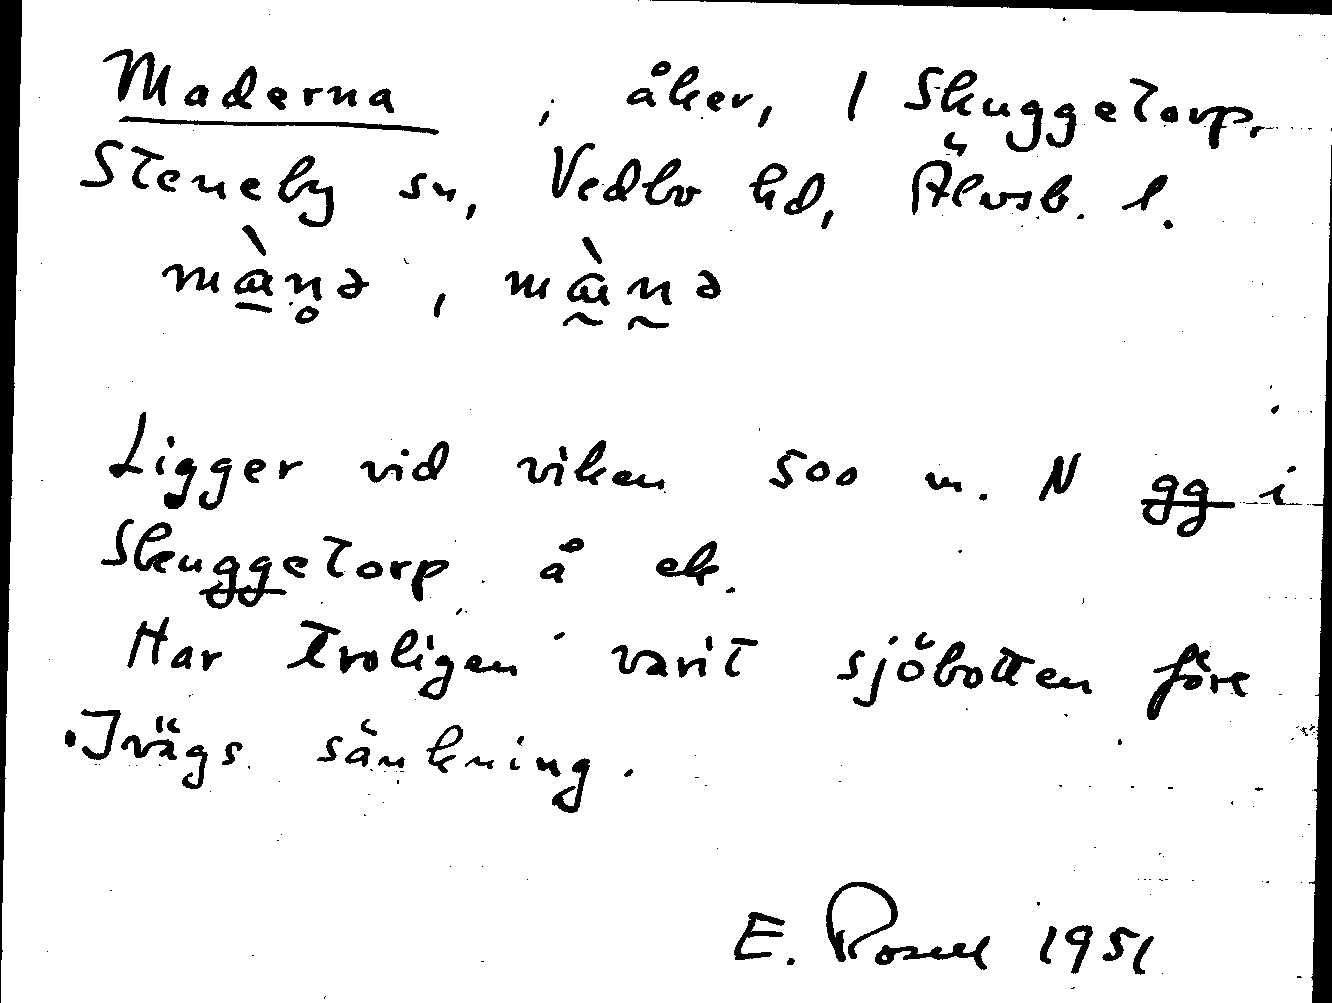 Maderna, åker, 1 Skuggetorp.
Steneby sn, Vedbo hd, Älvsb. l.
Ligger vid viken 500 m. N gg i
Skuggetorp å ek.
Har troligen varit sjöbotten före
Ivägs sänkning.
E. Rosell 1951